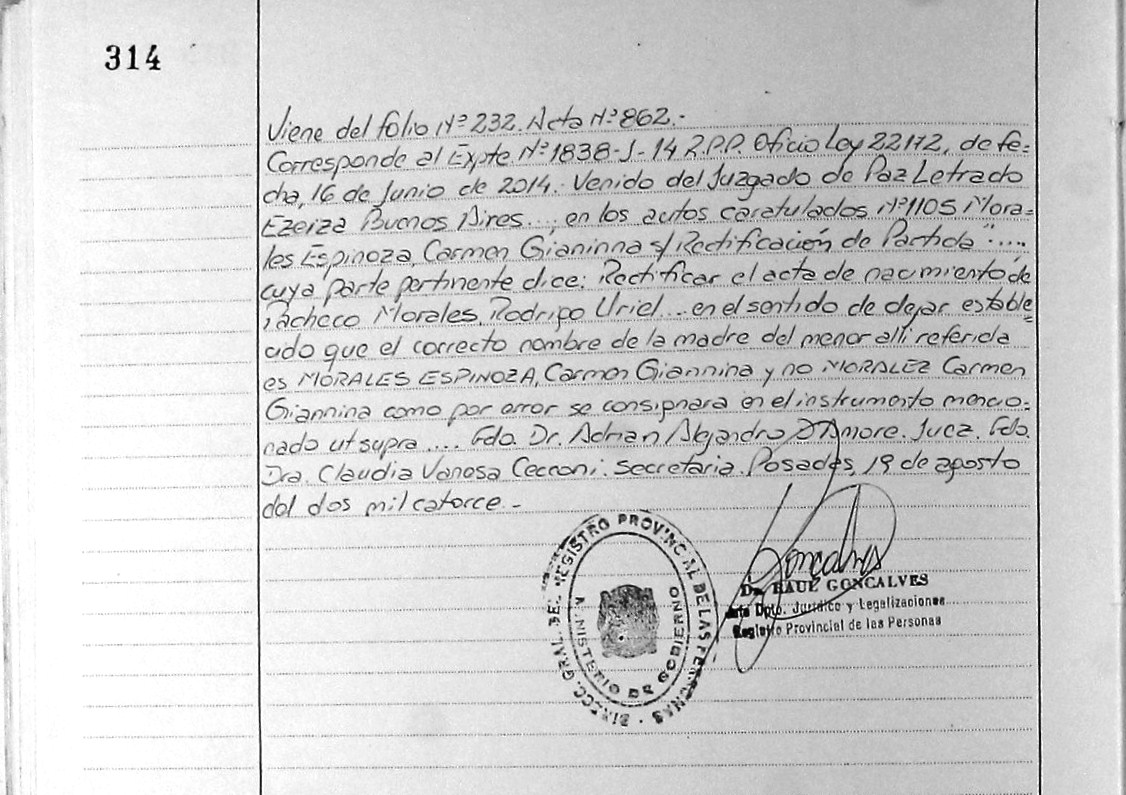 314
Viene del folio Nº 232. Acta Nº 862.-
Corresponde al Expte. Nº 1838-J-14 R.P.P. Oficio Ley 22172, de fe-
cha, 16 de Junio de 2014. Venido del Juzgado de Paz Letrado
Ezeiza Buenos Aires...; en los autos caratulados Nº 1105 Mora=
les Espinoza, Carmen Gianinna s/ Rectificación de Partida "....
cuya parte pertinente dice: Rectificar el acta de nacimiento de
Pacheco Morales, Rodrigo Uriel... en el sentido de dejar estable
cido que el correcto nombre de la madre del menor alli referida
es MORALES ESPINOZA, Carmen Giannina y no MORALEZ Carmen
Giannina como por error se consignara en el instrumento mencio-
nado ut supra .... Fdo. Dr. Adrian Alejandro D'Amore. Juez. Fdo.
Dra. Claudia Vanesa Cecconi. Secretaria. Posadas, 19 de agosto
del dos mil catorce.-
DIRECC. GRAL. DEL REGISTRO PROVINCIAL DE LAS PERSONAS
MINISTERIO DE GOBIERNO
Goncalves
Dr. RAUL GONCALVES
Dpto. Jurídico y Legalizaciones
Registro Provincial de las Personas